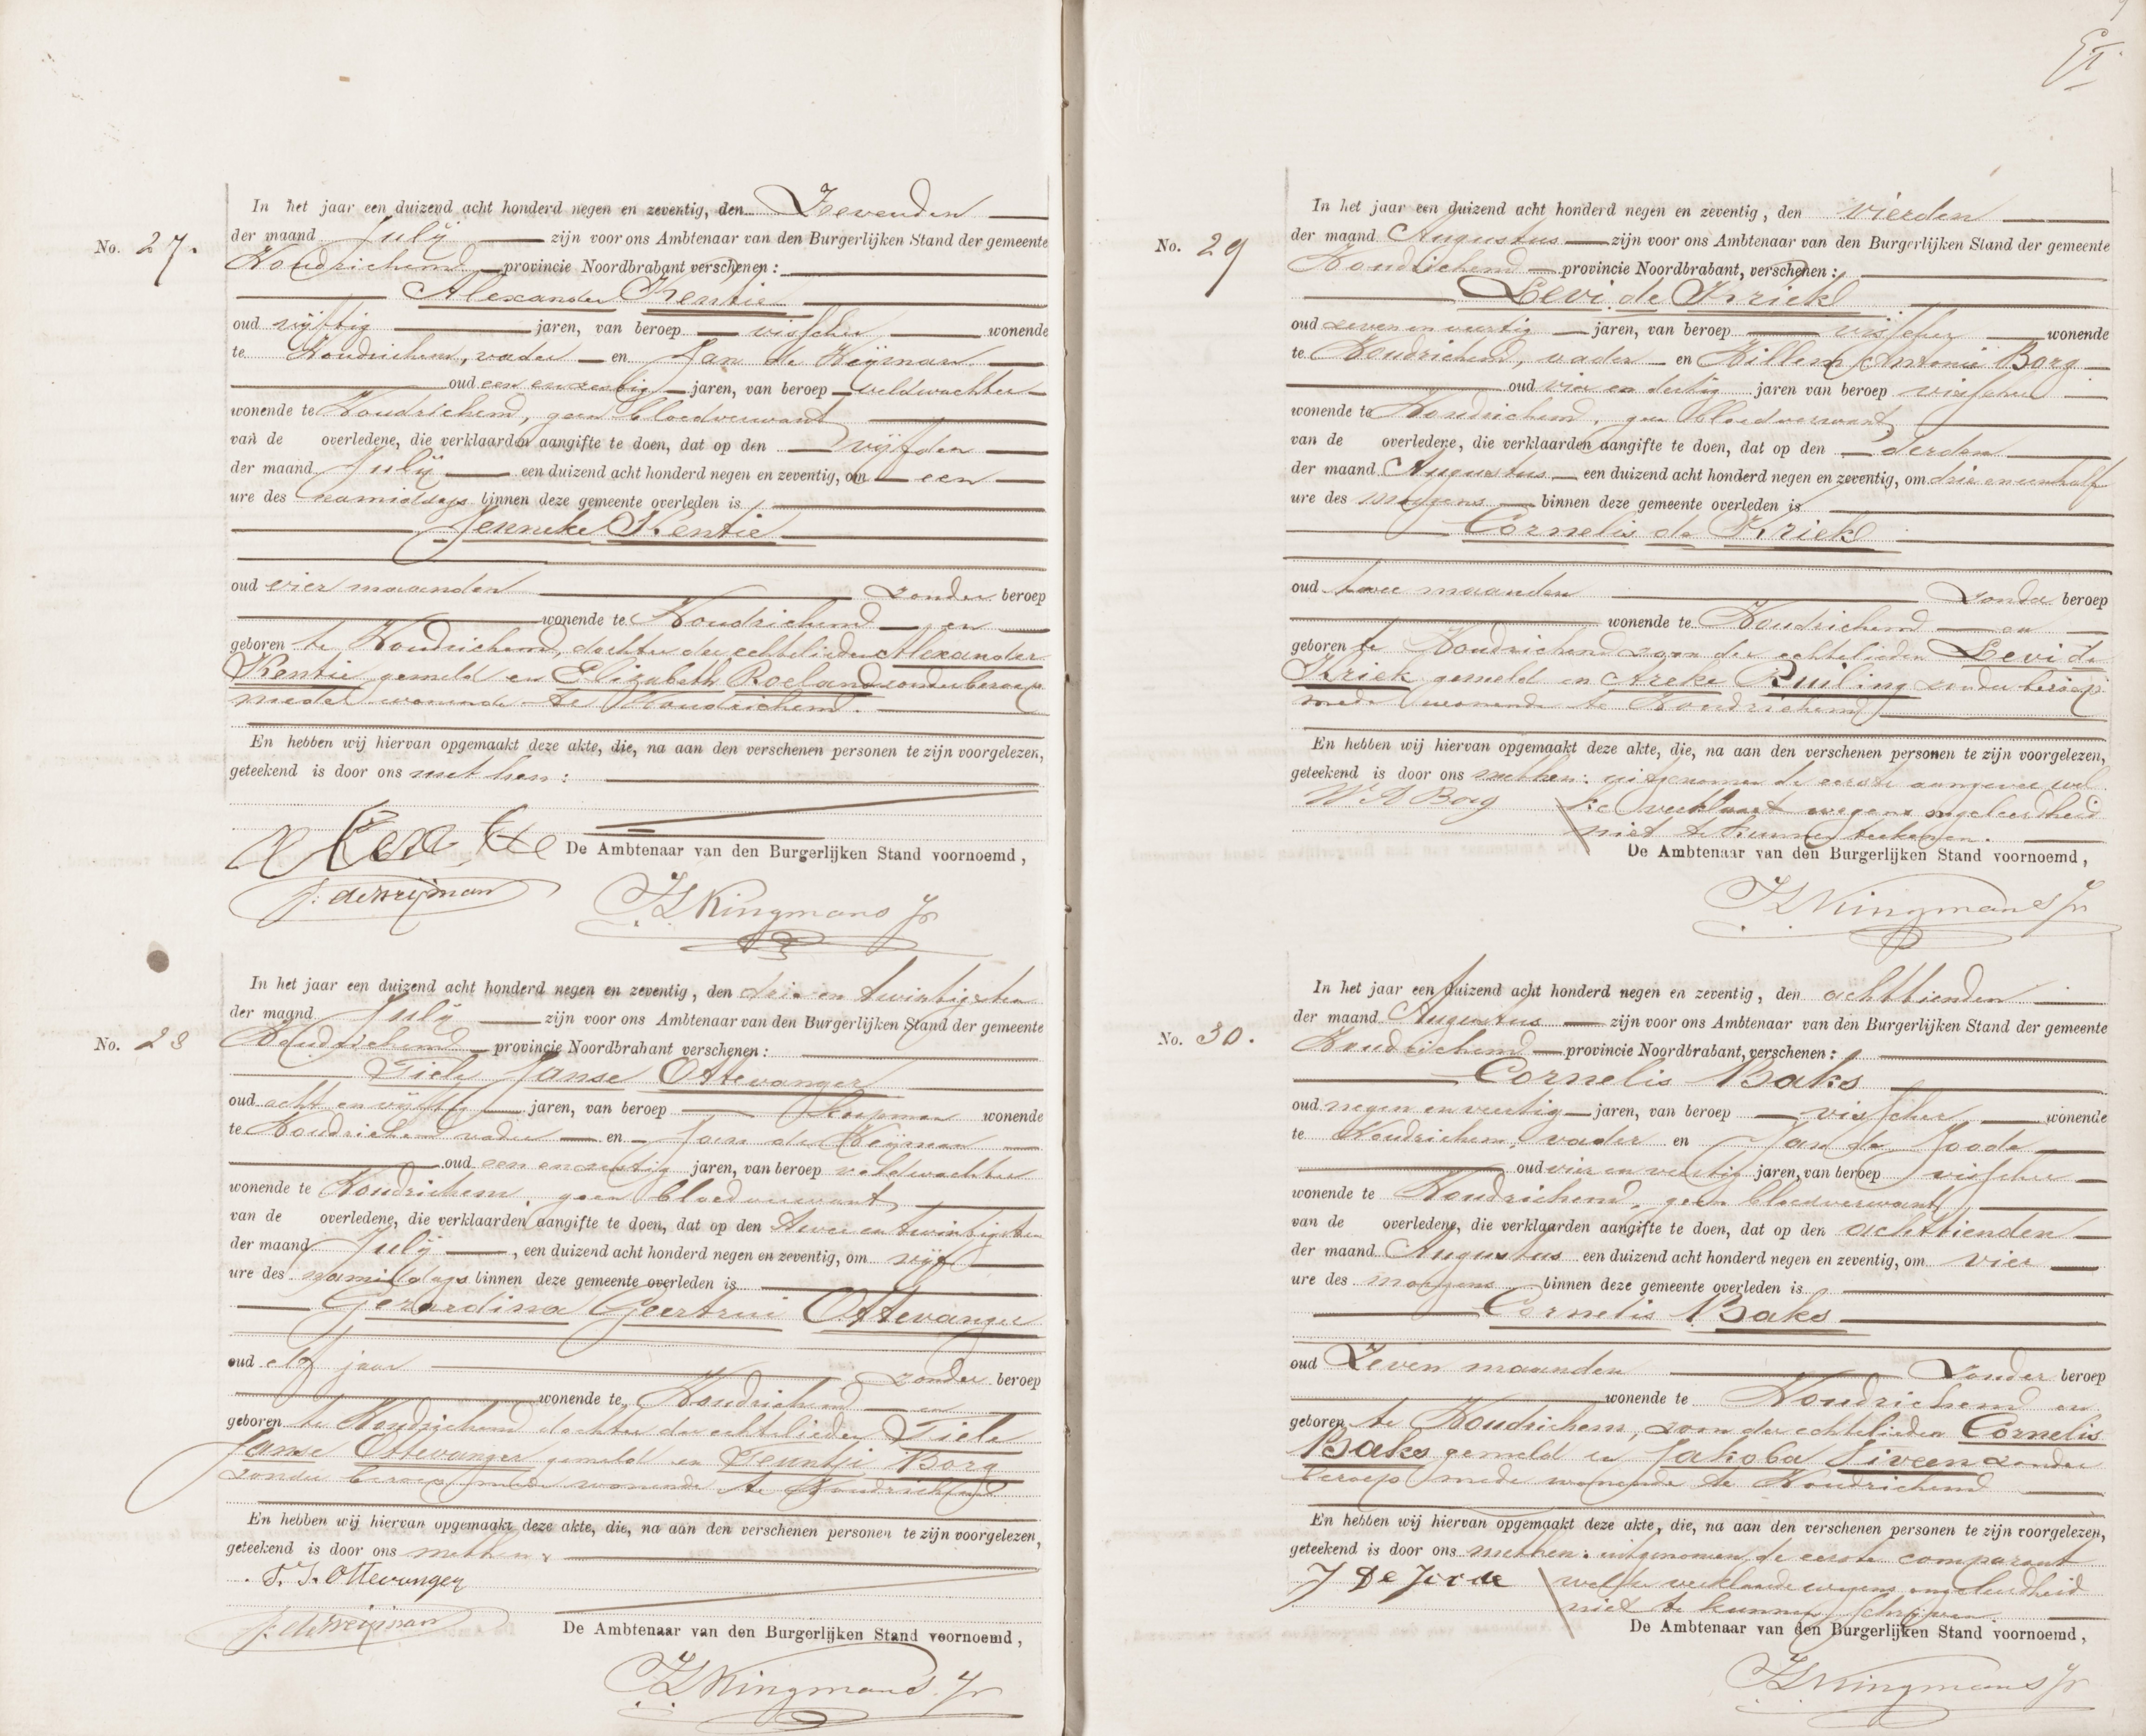 No. 27.
In het jaar een duizend acht honderd negen en zeventig, den Zevenden
der maand July zijn voor ons Ambtenaar van den Burgerlijken Stand der gemeente
Woudrichem provincie Noordbrabant verschenen:
Alexander Kentie
oud vijftig jaren, van beroep visscher wonende
te Woudrichem, vader en Jan de Weijman
oud een en zestig jaren, van beroep veldwachter
wonende te Woudrichem, geen bloedverwant
van de overledene, die verklaarden aangifte te doen, dat op den vijfden
der maand July een duizend acht honderd negen en zeventig, om een
ure des namiddags binnen deze gemeente overleden is
Jenneke Kentie
oud vier maanden zonder beroep
wonende te Woudrichem en
geboren te Woudrichem, dochter der echtelieden Alexander
Kentie gemeld en Elizabeth Roeland zonder beroep
mede wonende te Woudrichem.
En hebben wij hiervan opgemaakt deze akte, die, na aan den verschenen personen te zijn voorgelezen,
geteekend is door ons met hen:
A Kentie
De Ambtenaar van den Burgerlijken Stand voornoemd,
J. de Weijman
Kingmans Jr
No. 28
In het jaar een duizend acht honderd negen en zeventig, den drie en twintigsten
der maand July zijn voor ons Ambtenaar van den Burgerlijken Stand der gemeente
Woudrichem provincie Noordbrabant verschenen:
Tiele Janse Ottevanger
oud acht en vijftig jaren, van beroep Koopman wonende
te Woudrichem vader en Jan de Weijman
oud een en zestig jaren, van beroep veldwachter
wonende te Woudrichem, geen bloedverwant
van de overledene, die verklaarden aangifte te doen, dat op den twee en twintigsten
der maand July, een duizend acht honderd negen en zeventig, om vijf
ure des namiddags binnen deze gemeente overleden is
Gerardina Geertrui Ottevanger
oud elf jaar zonder beroep
wonende te Woudrichem en
geboren te Woudrichem dochter der echtelieden Tiele
Janse Ottevanger gemeld en Teuntje Borg
zonder beroep mede wonende te Woudrichem
En hebben wij hiervan opgemaakt deze akte, die, na aan den verschenen personen te zijn voorgelezen,
geteekend is door ons met hen
T. J. Ottevanger
J. de Weijman
De Ambtenaar van den Burgerlijken Stand voornoemd,
Kingmans Jr
No. 29
In het jaar een duizend acht honderd negen en zeventig, den vierden
der maand Augustus zijn voor ons Ambtenaar van den Burgerlijken Stand der gemeente
Woudrichem provincie Noordbrabant, verschenen:
Levi de Kriek
oud zeven en veertig jaren, van beroep visscher wonende
te Woudrichem, vader en Willem Antonie Borg
oud vier en dertig jaren van beroep visscher
wonende te Woudrichem, geen bloedverwant,
van de overledene, die verklaarden aangifte te doen, dat op den derden
der maand Augustus een duizend acht honderd negen en zeventig, om drie en een half
ure des morgens binnen deze gemeente overleden is
Cornelis de Kriek
oud twee maanden zonder beroep
wonende te Woudrichem en
geboren te Woudrichem zoon der echtelieden Levi de
Kriek gemeld en Areke Ruiling zonder beroep
mede wonende te Woudrichem
En hebben wij hiervan opgemaakt deze akte, die, na aan den verschenen personen te zijn voorgelezen,
geteekend is door ons met hen: uitgenomen de eerste aangever wel
W A Borg ke verklaart wegens ongeleerdheid
niet te kunnen teekenen.
De Ambtenaar van den Burgerlijken Stand voornoemd,
Kingmans Jr
No. 30.
In het jaar een duizend acht honderd negen en zeventig, den achttienden
der maand Augustus zijn voor ons Ambtenaar van den Burgerlijken Stand der gemeente
Woudrichem provincie Noordbrabant, verschenen:
Cornelis Baks
oud negen en veertig jaren, van beroep visscher wonende
te Woudrichem, vader en Jan de Joode
oud vier en veertig jaren, van beroep visscher
wonende te Woudrichem, geen bloedverwant
van de overledene, die verklaarden aangifte te doen, dat op den achttienden
der maand Augustus een duizend acht honderd negen en zeventig, om vier
ure des morgens binnen deze gemeente overleden is
Cornelis Baks
oud Zeven maanden Zonder beroep
wonende te Woudrichem en
geboren te Woudrichem, zoon der echtelieden Cornelis
Baks gemeld en Jakoba Siveen zonder
beroep mede wonende te Woudrichem
En hebben wij hiervan opgemaakt deze akte, die, na aan den verschenen personen te zijn voorgelezen,
geteekend is door ons met hen: uitgenomen de eerste comparant
J De Jode welke verklaarde wegens ongeleerdheid
niet te kunnen schrijven
De Ambtenaar van den Burgerlijken Stand voornoemd,
Kingmans Jr